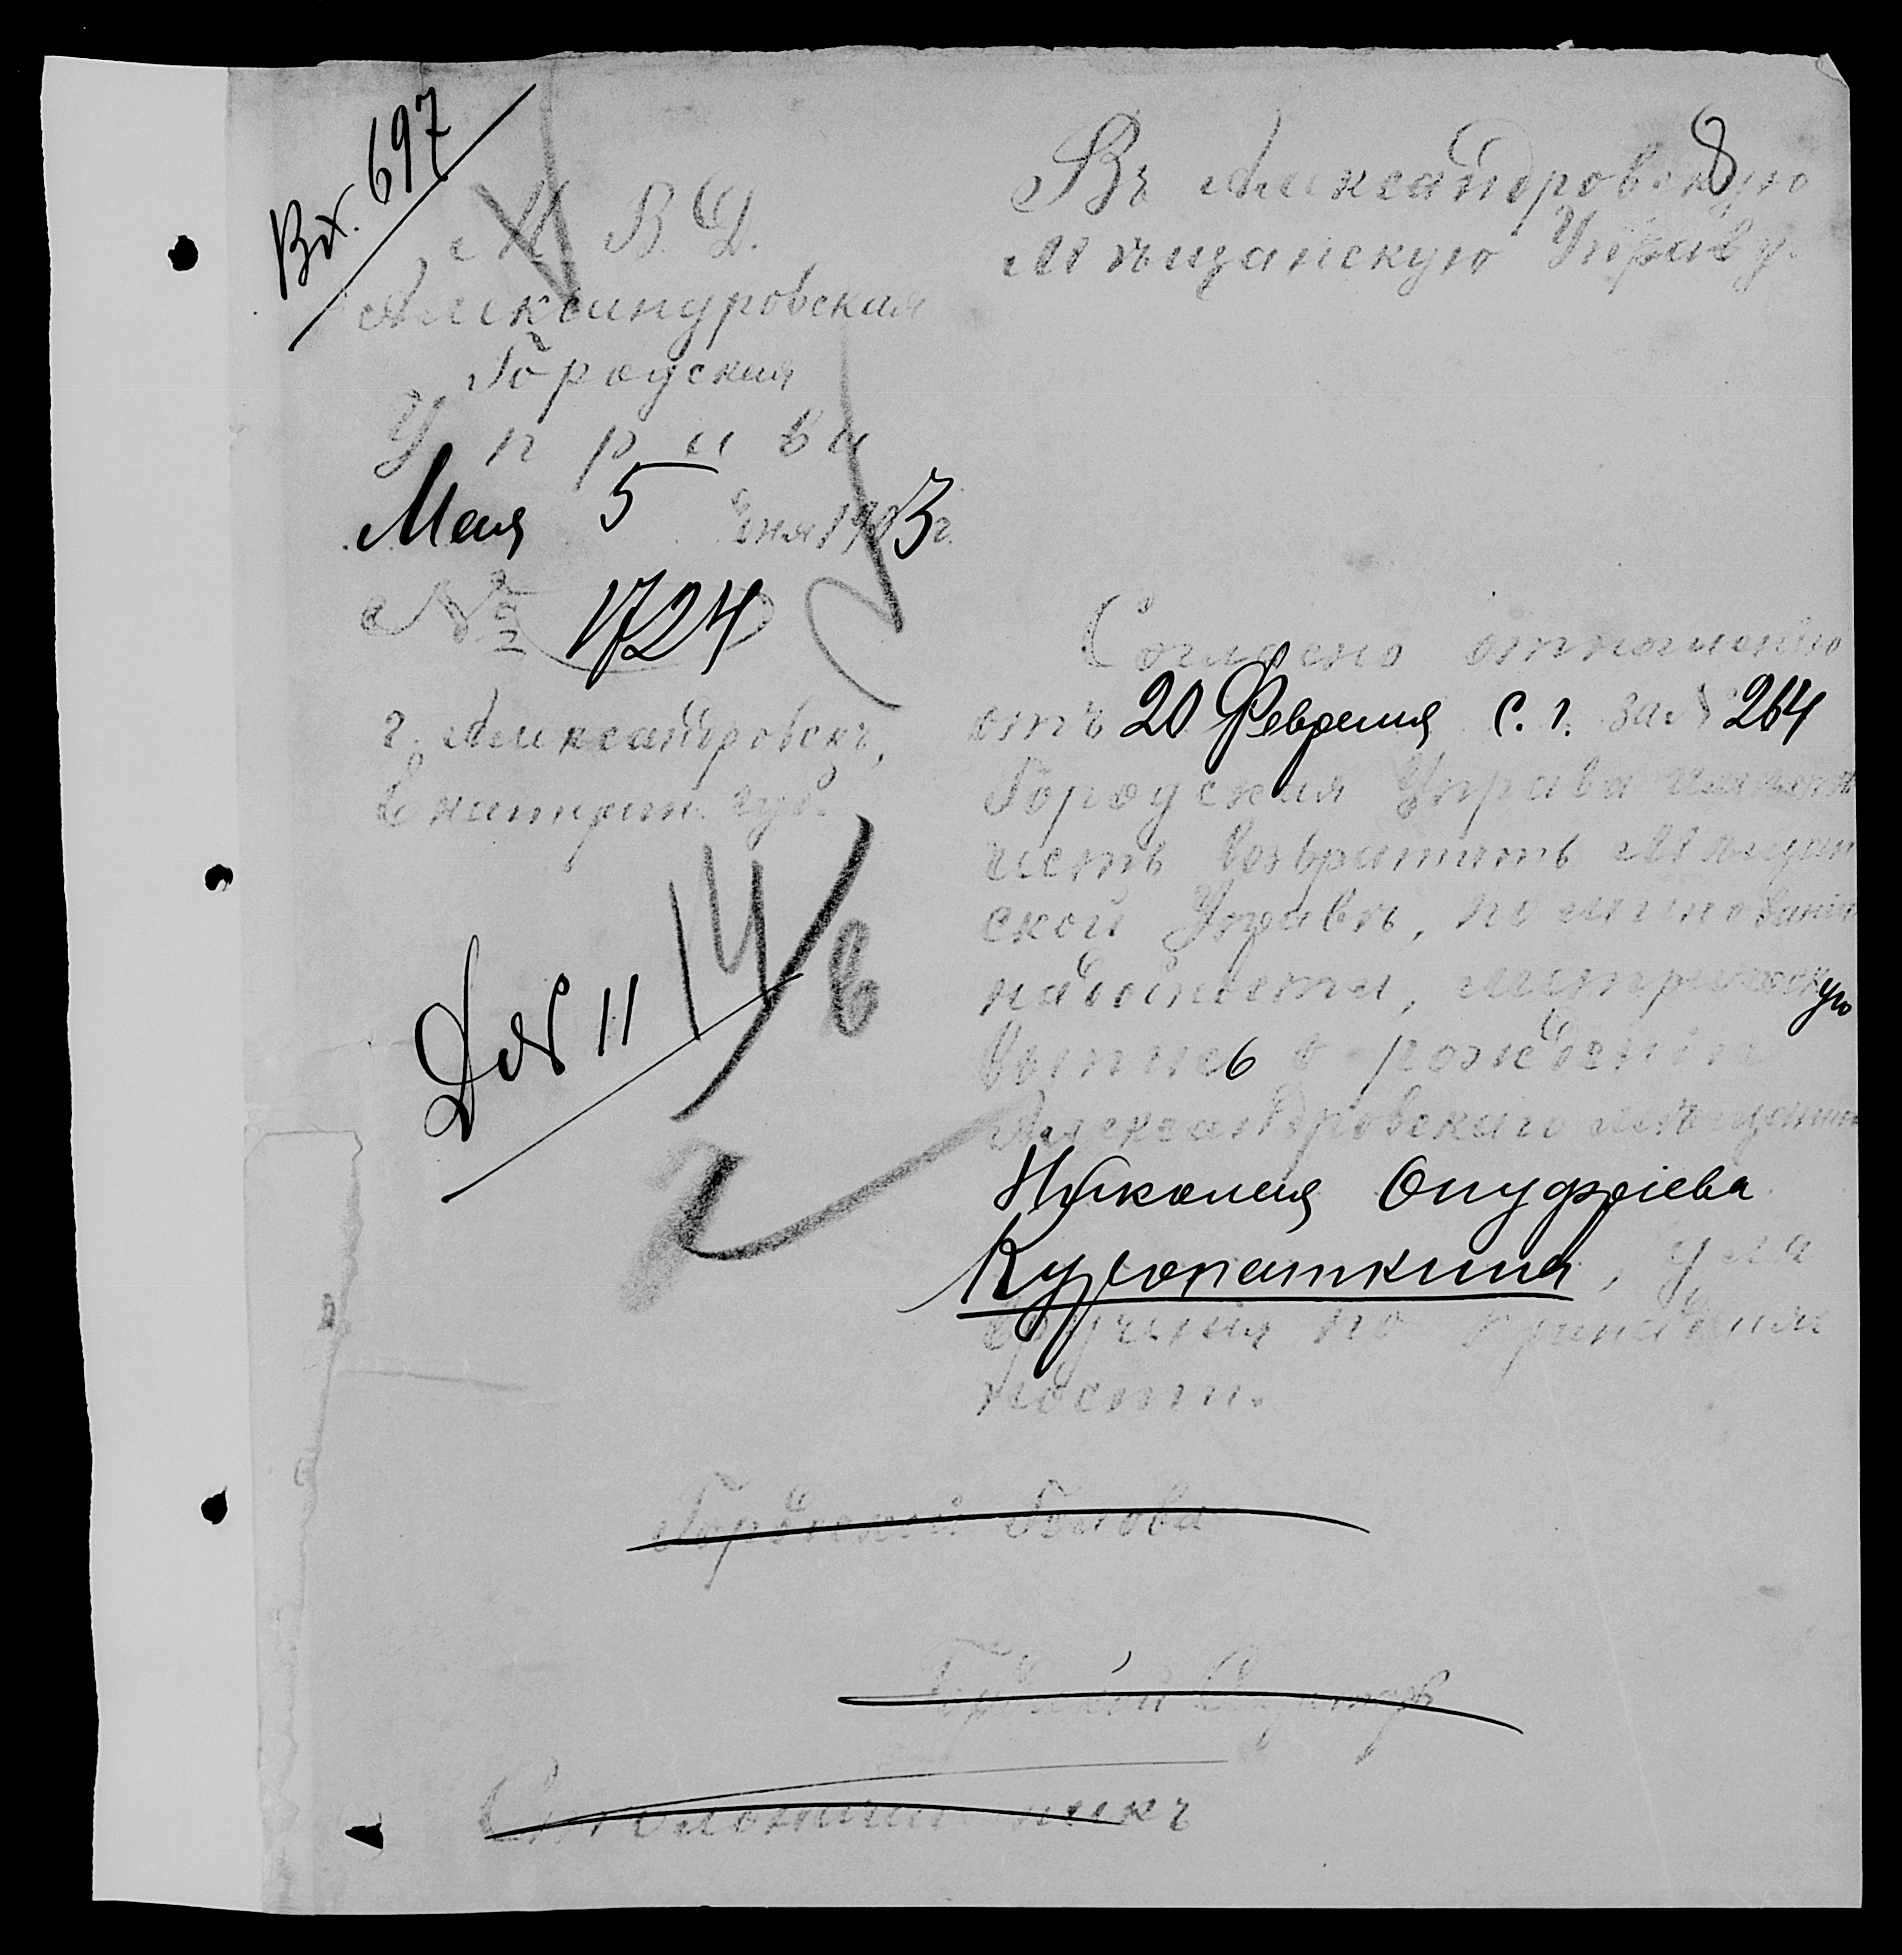 Вх. 697
8
М. В. Д.
Александровская
Городская
Управа
Мая 5 дня 1903 г.
№ 1724
г. Александровскъ,
Екатерин. губ.
Въ Александровскую
Мѣщанскую Управу.
Согласно отношенію
отъ 20 Февраля с. г. за № 264
Городская Управа имѣетъ
честь возвратить Мѣщан
ской Управѣ, по минованіи
надобности, метрическую
выпись о рожденіи
Александровскаго мѣщанина
Николая Онуфріева
Куропаткина, для
врученія по принадлеж
ности.
Д № 11
14/в
Городской Голова
Городской Секретарь
Столоначальникъ